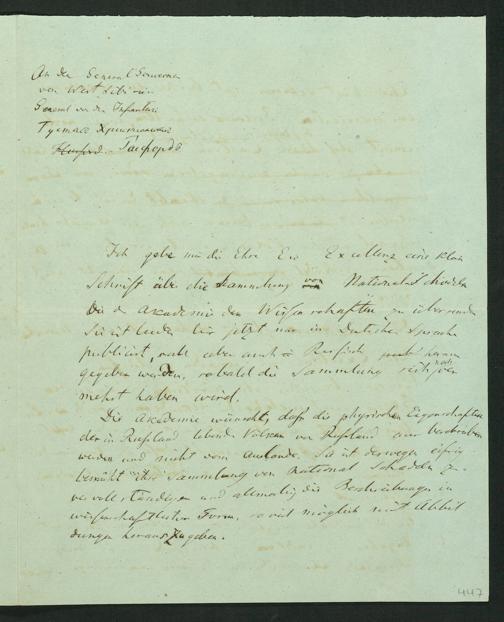 An den General Gouverneur
von West Sibirien
General von der Infanterie
Густав Христианович
Гасфордъ
Ich gebe mir die Ehre Ew Excellenz eine kleine
Schrift über die Sammlung von National Schädeln
der Akademie der Wissenschaften zu übersenden
Sie ist leider bis jetzt nur in deutscher Sprache
publicirt, soll aber auch in Russisch heraus
gegeben werden, sobald die Sammlung sich noch ver
mehrt haben wird.
Die Akademie wünscht, dass die physischen Eigenschaften
der in Russland lebenden Völker von Russland aus beschrieben
werden und nicht vom Auslande. Sie ist deswegen eifrig
bemüht ihre Sammlung von National Schädeln zu
vervollständigen und allmälig die Beschreibungen in
wissenschaftlicher Form, so viel möglich mit Abbil
dungen herauszugeben.
447